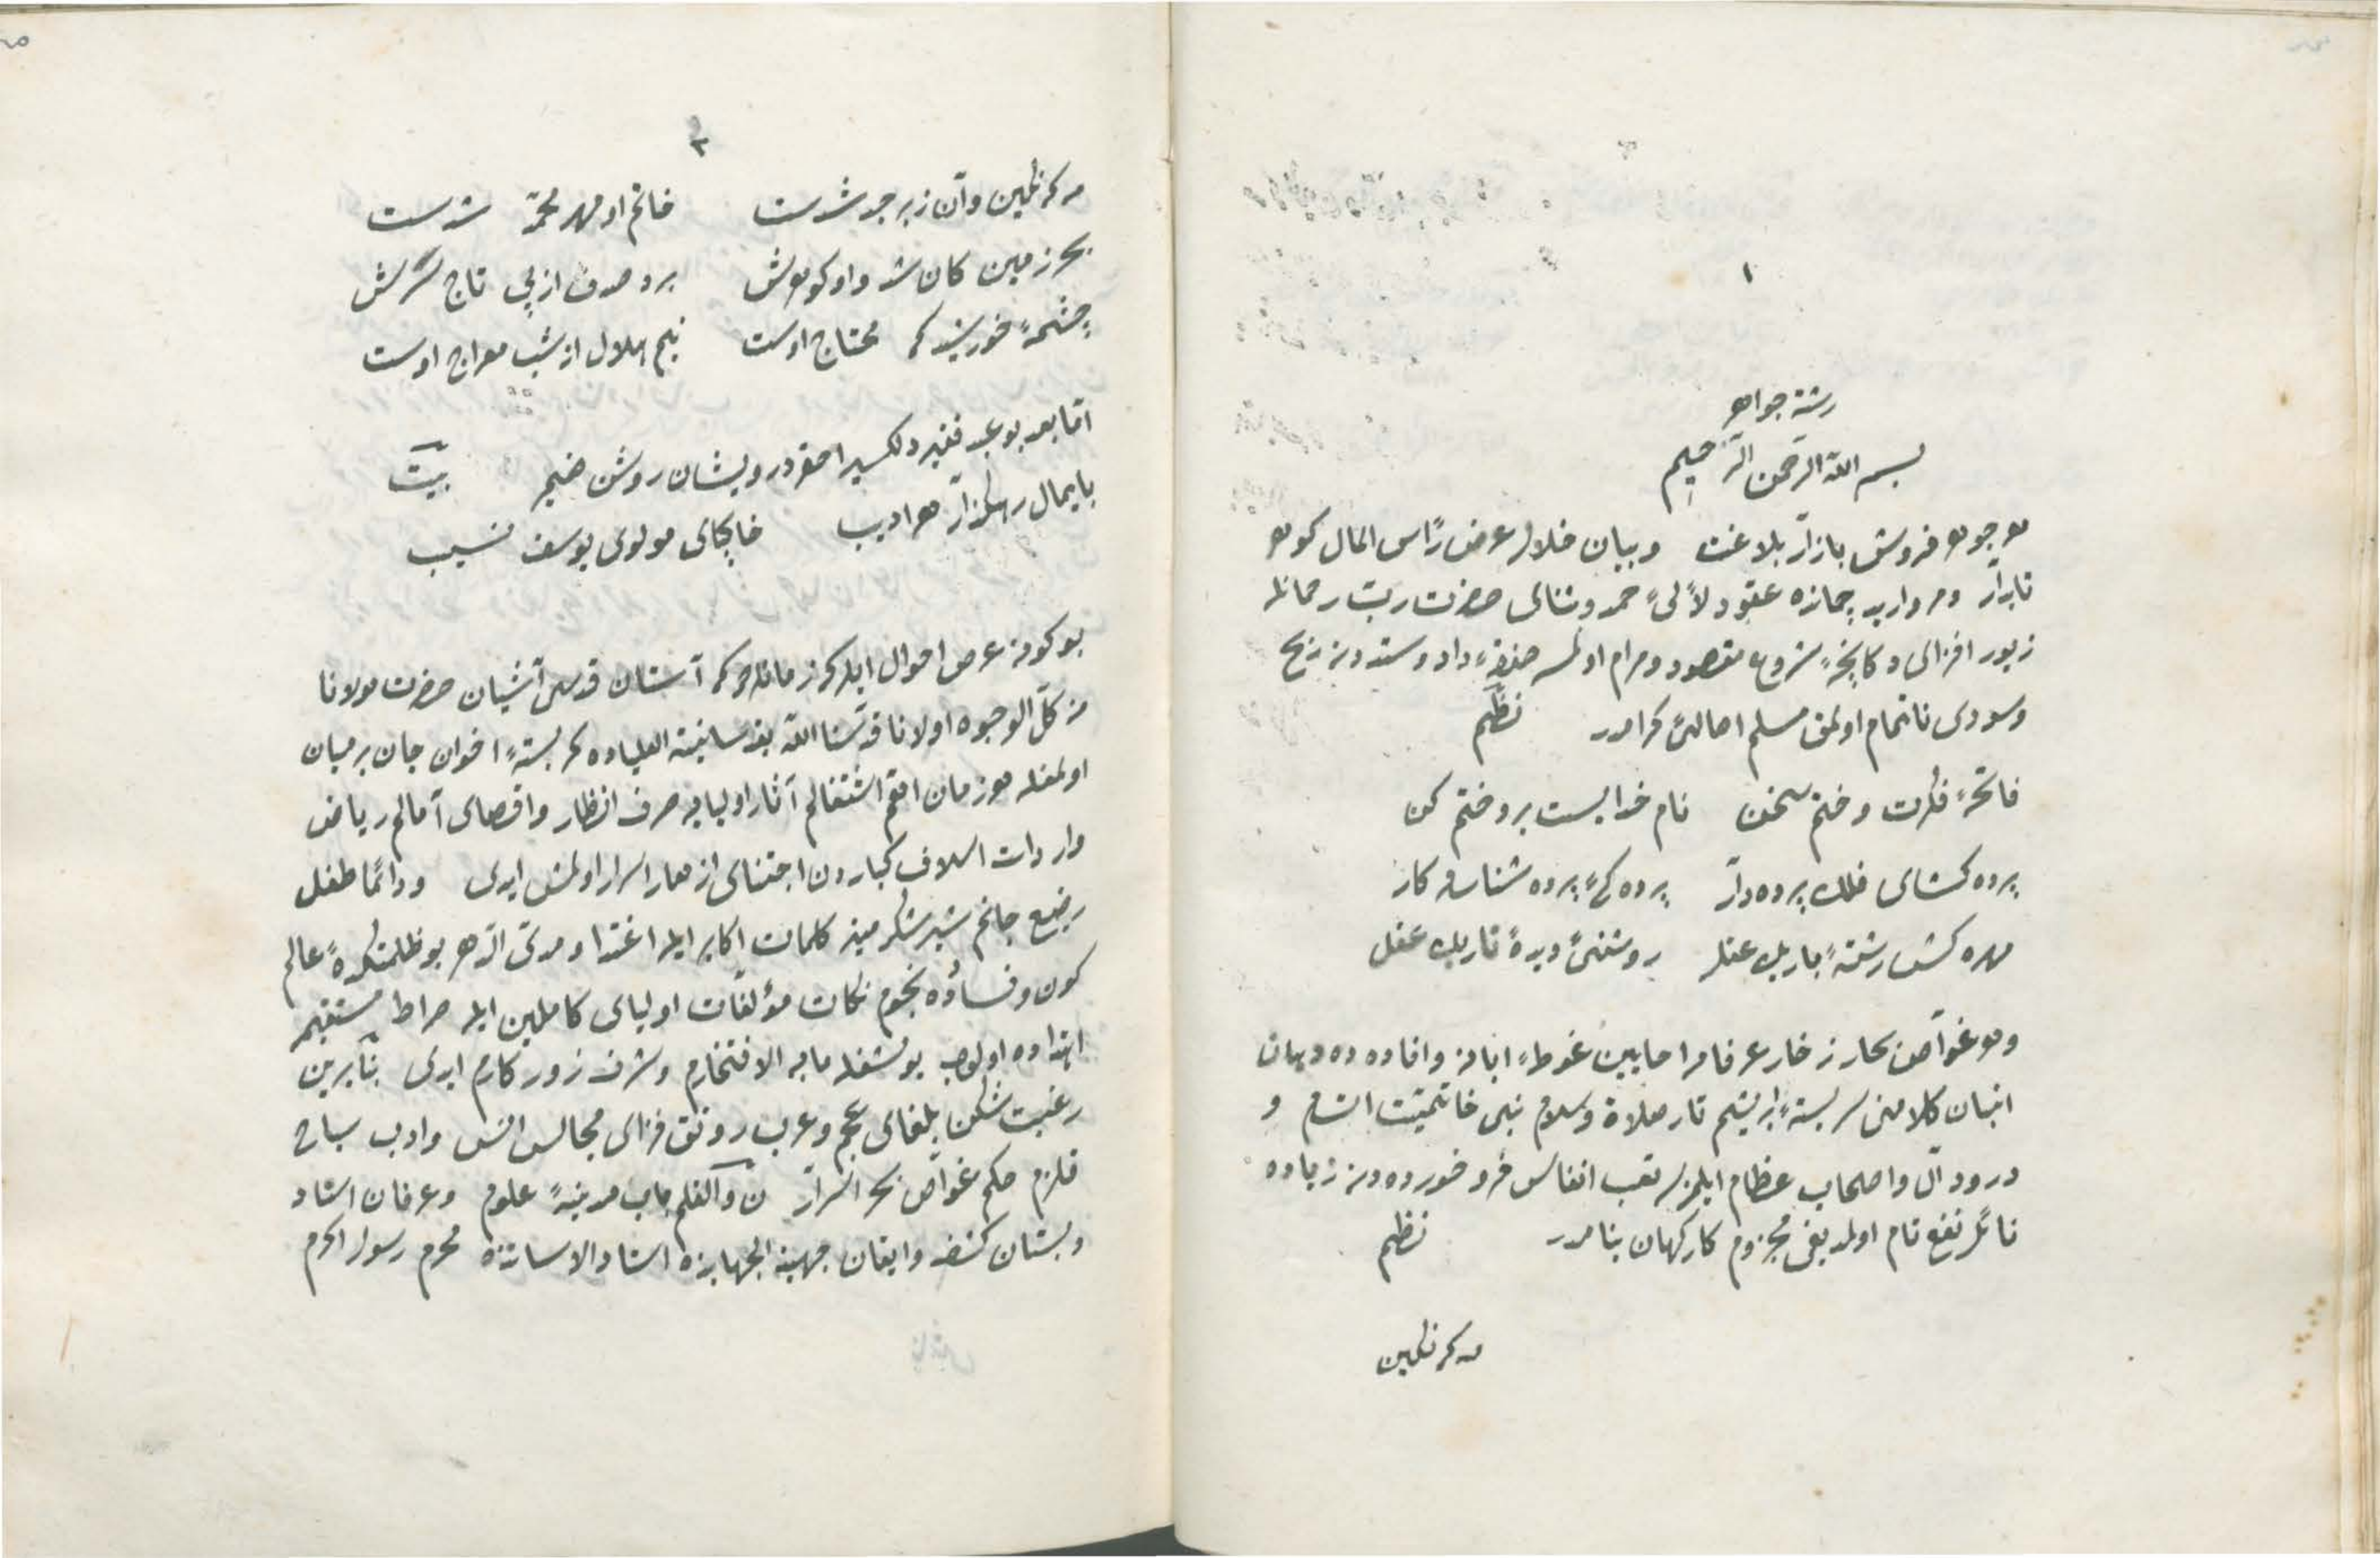 ١
رشته جواهر
بسم الله الرّحمن الرّحيم
هر جوهر فروش بازار بلاغت و بيان خلال عرض رأس المال كوهر
تابدار و مرواريد جمازه عقود لآلئ حمد و ثناى حضرت ربّ رحمانله
زيور افزاى دكانچهٔ شروع مقصود و مرام اولمسه صفقهٔ داد و ستددن ربح
و سودى ناتمام اولمق مسلم اهالئ كرامدر نظم
فاتحهٔ فكرت و ختم سخن نام خدايست برو ختم كن
پرده كشاى فلك پرده دار پردگئ پرده شناسان كار
مهره كش رشتهٔ باريك عقل روشنئ ديدهٔ تاريك عقل
و هر غواص بحار زخار عرفان
انبان كلامنى سربستهٔ ابريشم تار صلاة و سلام نبى خاتميت اتسام و
درود آل و اصحاب عظام ايلمزسه تعب انفاس فرو خورده دن زياده
نائل نفع تام اولمديغى مجزوم كاركهان بنامدر نظم
مه كه نكين
٢
مه كه نكين دان زبرجد شدست خاتم او مهر محمّد شدست
بحر زمين كان شد و او كوهرش برد صدف از پى تاج سرش
چشمهٔ خورشيد كه محتاج اوست نيم هلال از شب معراج اوست
امّا بعد بو عبد فقير دلكسير احقر درويشان روشن ضمير بيت
پايمال رهكذار هر اديب خاكپاى مولوى يوسف نسيب
بو كونه عرض احوال ايلر كه زمانله كه آستان قدسى آشيان حضرت مولانا
من كلّ الوجوه اولانا قدّسنا الله بفيوضاته العلياده كمر بستهٔ اخوان جان بر ميان
اولمغله هر زمان اهمّ اشتغالم آثار اوليايه صرف انظار و اقصاى آمالم رياض
واردات اسلاف كباردن اجتناى ازهار اسرار اولمش ايدى و دائما طفل
رضيع جانم شير شكرين كلمات اكابر ايله اغتذا و مدى الدّهر بو ظلمتكدهٔ عالم
كون و فسادده نجوم نكات مؤلفات اولياى كاملين ايله صراط مستقيمه
اهتداده اولوب بو مشغله مابه الافتخارم و شرف روزكارم ايدى بنابرين
رغبت شكن بلغاى عجم و عرب رونق فزاى مجالس انس و ادب سباح
قلزم حكم غواص بحر اسرار ن و القلم باب مدينهٔ علوم و عرفان استاد
دبستان كشف و ايقان جهبذ الجهابذه استاد الاساتذه محرم رسول اكرم